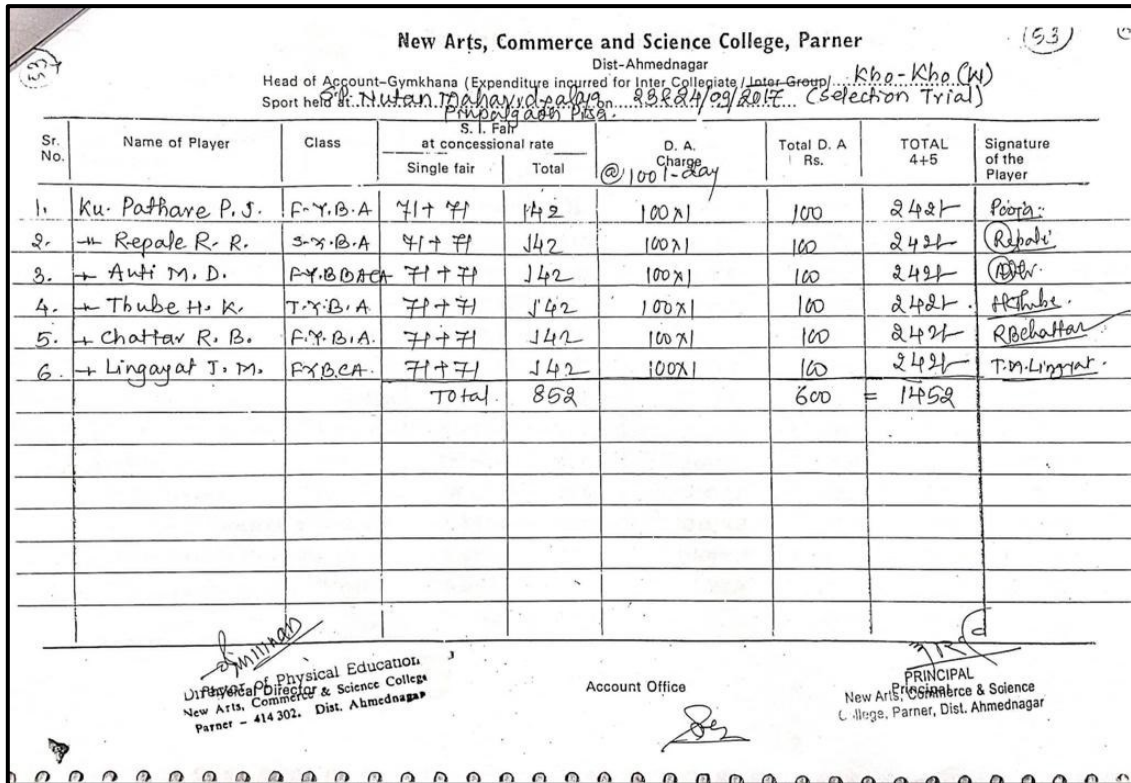 New Arts, Commerce and Science College, Parner
(53)
Dist-Ahmednagar
Head of Account-Gymkhana (Expenditure incurred for Inter Collegiate / Inter Group) Kho-Kho (W)
Sport held at Nutan Mahavidyalay on 23 & 24/09/2017 (Selection Trial)
Pimpalgaon Pisa.
Sr. No. Name of Player Class S. I. Fair at concessional rate Single fair Total D. A. Charge @ 100/- day Total D. A Rs. TOTAL 4+5 Signature of the Player
1. Ku. Pathare P. S. F.Y.B.A 71+71 142 100x1 100 242/- Pooja
2. -"- Repale R. R. S.Y.B.A 71+71 142 100x1 100 242/- Repale
3. -"- Auti M. D. F.Y.BBACA 71+71 142 100x1 100 242/-
4. -"- Thube H. K. T.Y.B.A 71+71 142 100x1 100 242/- HKThube.
5. -"- Chattar R. B. F.Y.B.A. 71+71 142 100x1 100 242/- RBChattar
6. -"- Lingayat J. M. F.Y.B.CA. 71+71 142 100x1 100 242/-
Total 852 600 = 1452
Director of Physical Education
Physical Director
New Arts, Commerce & Science College
Parner - 414 302. Dist. Ahmednagar
Account Office
PRINCIPAL
Principal
New Arts, Commerce & Science
College, Parner, Dist. Ahmednagar